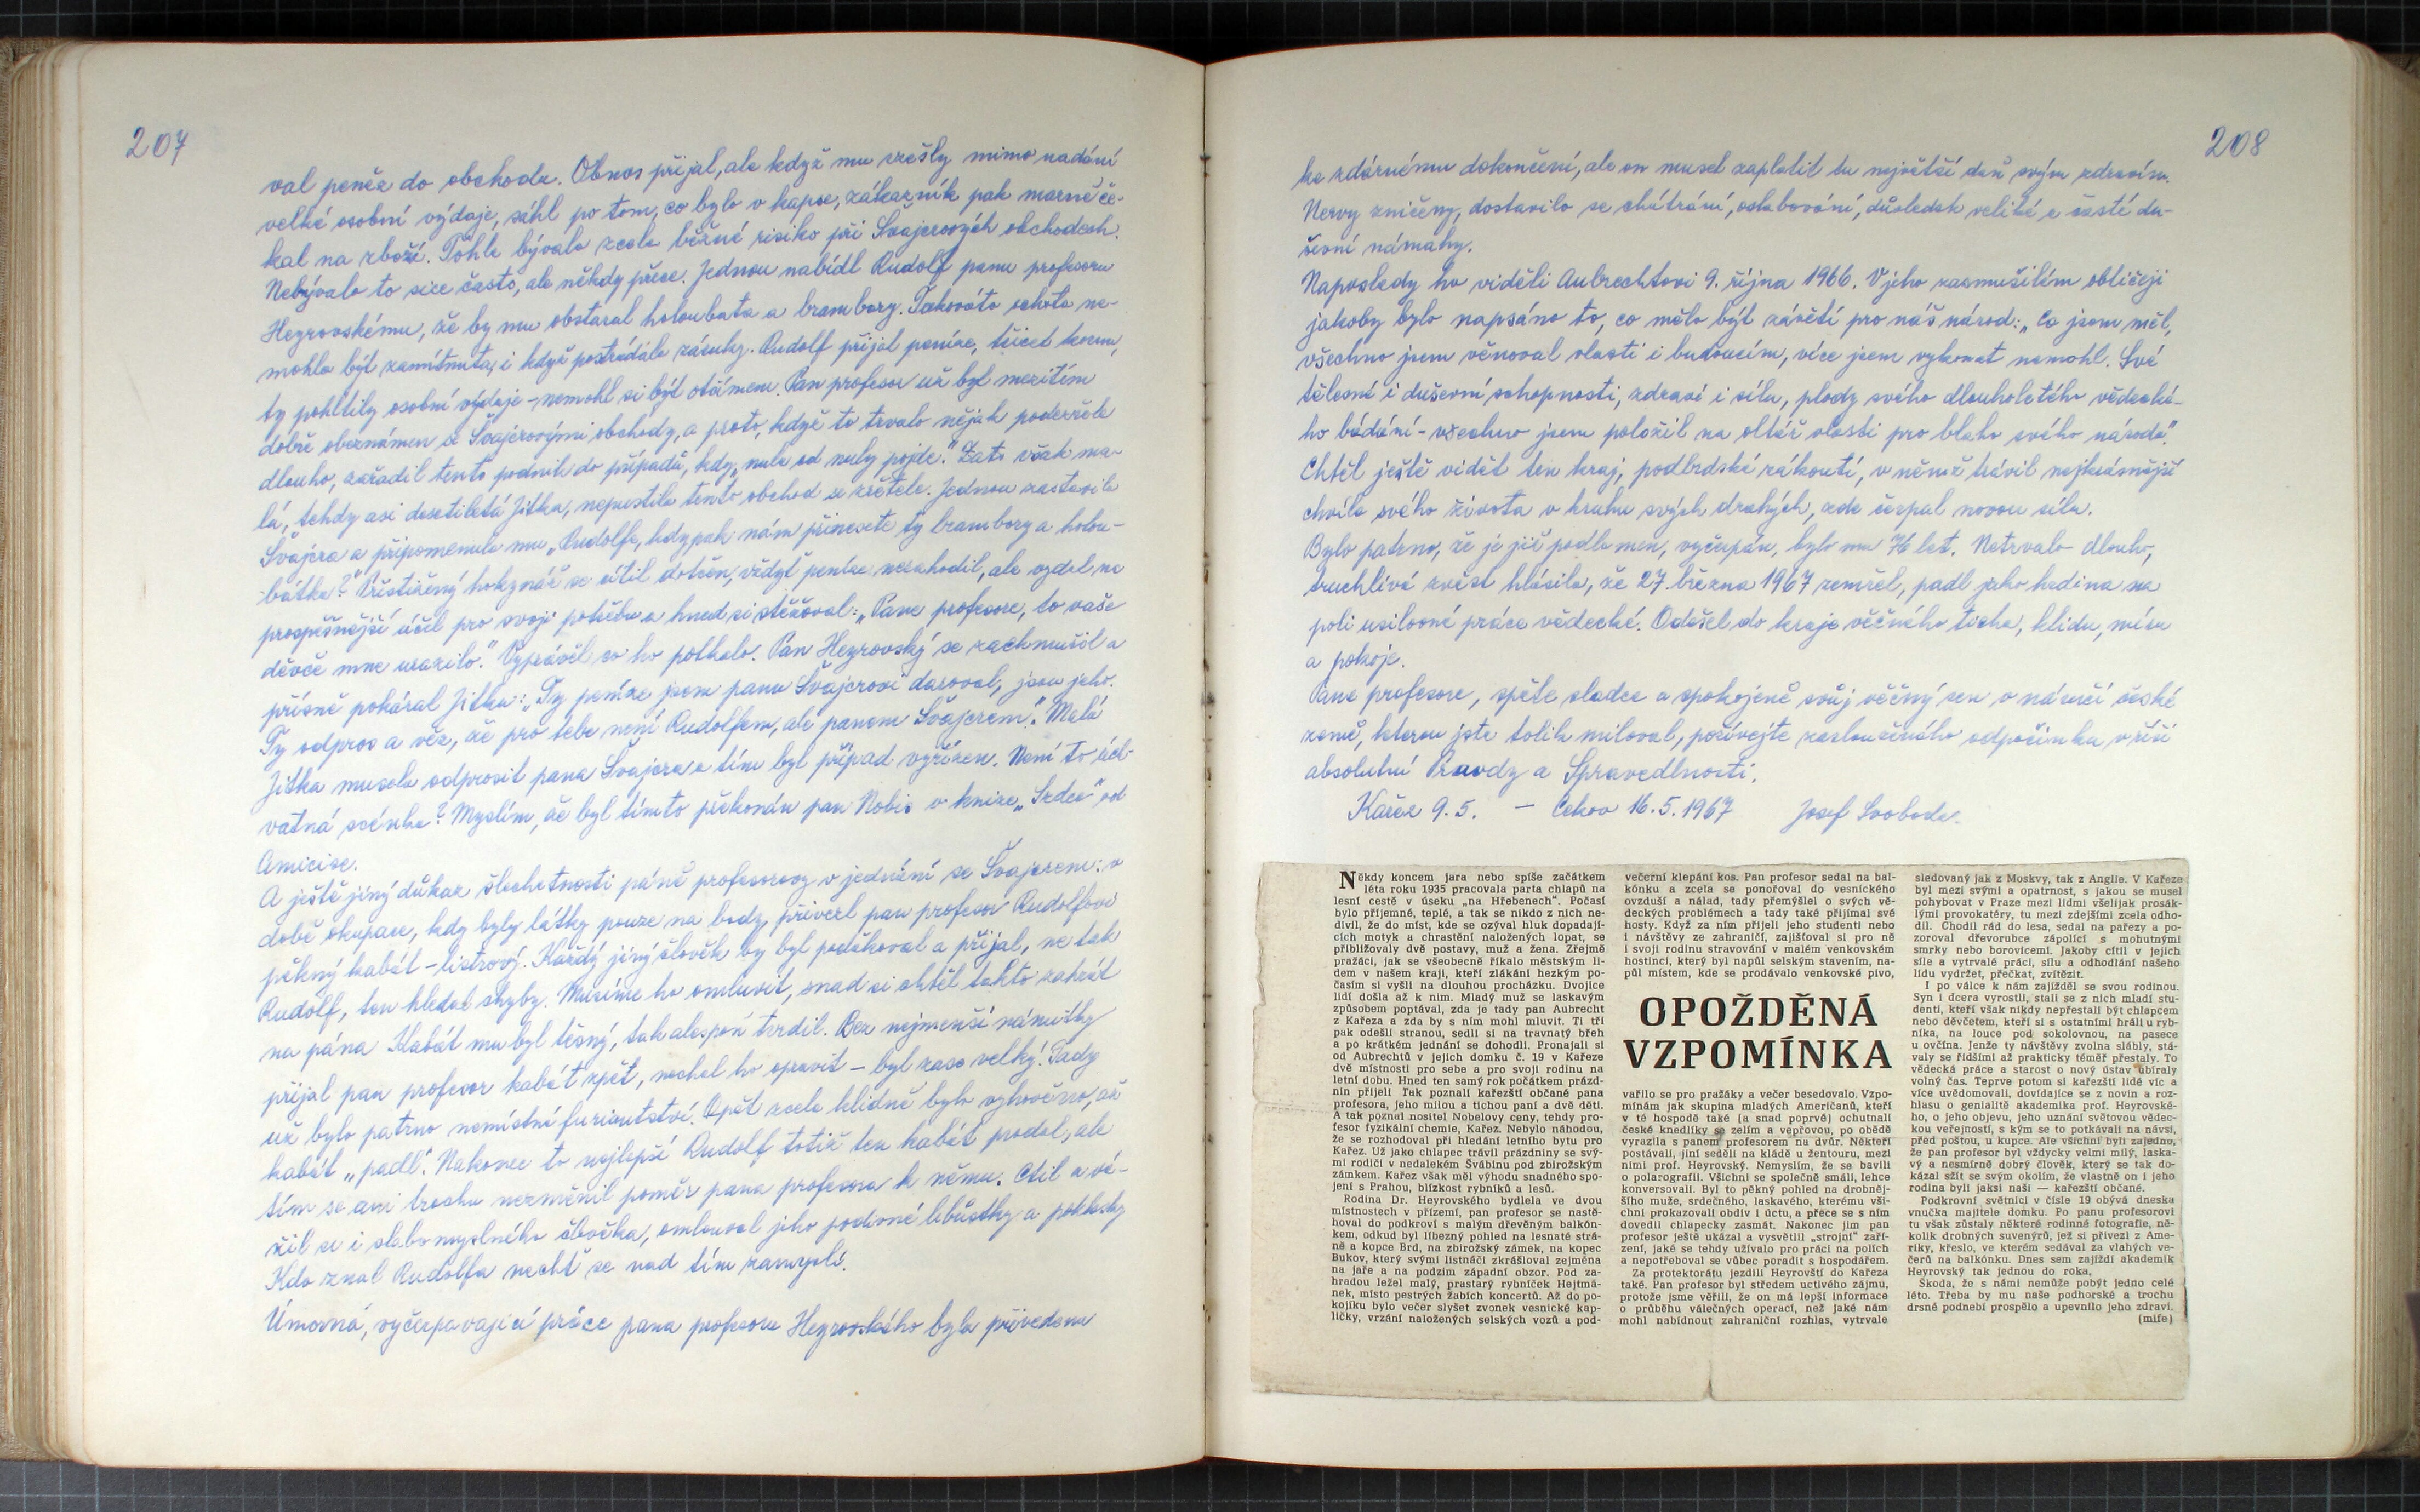 207
val peněz do obchodu. Obnos přijal, ale když mu vzešly mimo nadání
velké osobní výdaje, sáhl po tom, co bylo v kapse, zákazník pak marně če-
kal na zboží. Tohle bývalo zcela běžné risiko při Švajcrových obchodech.
Nebývalo to sice často, ale někdy přece. Jednou nabídl Rudolf panu profesoru
Heyrovskému, že by mu obstaral holoubata a brambory. Takováto ochota ne-
mohla být zamítnuta, i když postrádala záruky. Rudolf přijal peníze, třicet korun,
ty pohltily osobní výdaje - nemohl si být otámem. Pan profesor už byl mezitím
dobře obeznámen se Švajcrovými obchody, a proto, když to trvalo nějak podezřele
dlouho, zařadil tento podnik do případů, kdy „nula od nuly pojde." Zato však ma-
lá, tehdy asi desetiletá Jitka, nepustila tento obchod se zřetele. Jednou zastavila
Švajcra a připomenula mu „Rudolfe, kdypak nám přinesete ty brambory a holou-
bátka?" Přistižený hokynář se cítil dotčen, vždyť peníze nezahodil, ale vydal na
prospěšnější účel pro svoji potřebu a hned si stěžoval: „Pane profesore, to vaše
děvče mne urazilo." Vyprávěl co ho potkalo. Pan Heyrovský se zachmuřil a
přísně pokáral Jitku: „Ty peníze jsem panu Švajcrovi daroval, jsou jeho.
Ty odpros a věz, že pro tebe není Rudolfem, ale panem Švajcrem." Malá
Jitka musela odprosit pana Švajcra a tím byl případ vyřízen. Není to úch-
vatná scénka? Myslím, že byl tímto překonán pan Nobis v knize „Srdce" od
Amicise.
A ještě jiný důkaz šlechetnosti páně profesorovy v jednání se Švajcrem: v
době okupace, kdy byly látky pouze na body, přivezl pan profesor Rudolfovi
pěkný kabát - listrový. Každý jiný člověk by byl poděkoval a přijal, ne tak
Rudolf, ten hledal chyby. Musíme ho omluvit, snad si chtěl takto zahrát
na pána. Kabát mu byl těsný, tak alespoň tvrdil. Bez nejmenší námitky
přijal pan profesor kabát zpět, nechal ho opravit - byl zase velký! Tady
už bylo patrno nemístné furiantství. Opět zcela klidně bylo vyhověno, až
kabát „padl". Nakonec to nejlepší Rudolf totiž ten kabát prodal, ale
tím se ani trochu nezměnil poměr pana profesora k němu. Ctil a vá-
žil si i slabomyslného človíčka, omlouval jeho podivné libůstky a poklesky
Kdo znal Rudolfa nechť se nad tím zamyslí.
Úmorná, vyčerpávající práce pana profesora Heyrovského byla přivedena
208
ke zdárnému dokončení, ale on musel zaplatit tu největší daň svým zdravím.
Nervy zničeny, dostavilo se chátrání, oslabování, důsledek veliké a časté du-
ševní námahy.
Naposledy ho viděli Aubrechtovi 9. října 1966. V jeho zasmušilém obličeji
jakoby bylo napsáno to, co mělo být závětí pro náš národ: „Co jsem měl,
všechno jsem věnoval vlasti i budoucím, více jsem vykonat nemohl. Své
tělesné i duševní schopnosti, zdraví i sílu, plody svého dlouholetého vědecké-
ho bádání - všechno jsem položil na oltář vlasti pro blaho svého národa."
Chtěl ještě vidět ten kraj, podbrdské zákoutí, v němž trávil nejkrásnější
chvíle svého života v kruhu svých drahých, zde čerpal novou sílu.
Bylo patrno, že je již podlomen, vyčerpán, bylo mu 76 let. Netrvalo dlouho,
truchlivá zvěst hlásila, že 27. března 1967 zemřel, padl jako hrdina na
poli usilovné práce vědecké. Odešel do kraje věčného ticha, klidu, míru
a pokoje.
Pane profesore, spěte sladce a spokojeně svůj věčný sen v náručí české
země, kterou jste tolik miloval, požívejte zaslouženého odpočinku v říši
absolutní Pravdy a Spravedlnosti.
Kařez 9. 5. - Cekov 16. 5. 1967 Josef Svoboda.
Někdy koncem jara nebo spíše začátkem
léta roku 1935 pracovala parta chlapů na
lesní cestě v úseku „na Hřebenech". Počasí
bylo příjemné, teplé, a tak se nikdo z nich ne-
divil, že do míst, kde se ozýval hluk dopadají-
cích motyk a chrastění naložených lopat, se
přibližovaly dvě postavy, muž a žena. Zřejmě
pražáci, jak se všeobecně říkalo městským li-
dem v našem kraji, kteří zlákáni hezkým po-
časím si vyšli na dlouhou procházku. Dvojice
lidí došla až k nim. Mladý muž se laskavým
způsobem poptával, zda je tady pan Aubrecht
z Kařeza a zda by s ním mohl mluvit. Ti tři
pak odešli stranou, sedli si na travnatý břeh
a po krátkém jednání se dohodli. Pronajali si
od Aubrechtů v jejich domku č. 19 v Kařeze
dvě místnosti pro sebe a pro svoji rodinu na
letní dobu. Hned ten samý rok počátkem prázd-
nin přijeli Tak poznali kařezští občané pana
profesora, jeho milou a tichou paní a dvě děti.
A tak poznal nositel Nobelovy ceny, tehdy pro-
fesor fyzikální chemie, Kařez. Nebylo náhodou,
že se rozhodoval při hledání letního bytu pro
Kařez. Už jako chlapec trávil prázdniny se svý-
mi rodiči v nedalekém Švábínu pod zbirožským
zámkem. Kařez však měl výhodu snadného spo-
jení s Prahou, blízkost rybníků a lesů.
Rodina Dr. Heyrovského bydlela ve dvou
místnostech v přízemí, pan profesor se nastě-
hoval do podkroví s malým dřevěným balkón-
kem, odkud byl líbezný pohled na lesnaté strá-
ně a kopce Brd, na zbirožský zámek, na kopec
Bukov, který svými listnáči zkrášloval zejména
na jaře a na podzim západní obzor. Pod za-
hradou ležel malý, prastarý rybníček Hejtmá-
nek, místo pestrých žabích koncertů. Až do po-
kojíku bylo večer slyšet zvonek vesnické kap-
ličky, vrzání naložených selských vozů a pod-
večerní klepání kos. Pan profesor sedal na bal-
kónku a zcela se ponořoval do vesnického
ovzduší a nálad, tady přemýšlel o svých vě-
deckých problémech a tady také přijímal své
hosty. Když za ním přijeli jeho studenti nebo
i návštěvy ze zahraničí, zajišťoval si pro ně
i svoji rodinu stravování v malém venkovském
hostinci, který byl napůl selským stavením, na-
půl místem, kde se prodávalo venkovské pivo,
OPOŽDĚNÁ
VZPOMÍNKA
vařilo se pro pražáky a večer besedovalo. Vzpo-
mínám jak skupina mladých Američanů, kteří
v té hospodě také (a snad poprvé) ochutnali
české knedlíky se zelím a vepřovou, po obědě
vyrazila s panem profesorem na dvůr. Někteří
postávali, jiní seděli na kládě u žentouru, mezi
nimi prof. Heyrovský. Nemyslím, že se bavili
o polarografii. Všichni se společně smáli, lehce
konversovali. Byl to pěkný pohled na drobněj-
šího muže, srdečného, laskavého, kterému vši-
chni prokazovali obdiv i úctu, a přece se s ním
dovedli chlapecky zasmát. Nakonec jim pan
profesor ještě ukázal a vysvětlil „strojní" zaří-
zení, jaké se tehdy užívalo pro práci na polích
a nepotřeboval se vůbec poradit s hospodářem.
Za protektorátu jezdili Heyrovští do Kařeza
také. Pan profesor byl středem uctivého zájmu,
protože jsme věřili, že on má lepší informace
o průběhu válečných operací, než jaké nám
mohl nabídnout zahraniční rozhlas, vytrvale
sledovaný jak z Moskvy, tak z Anglie. V Kařeze
byl mezi svými a opatrnost, s jakou se musel
pohybovat v Praze mezi lidmi všelijak prosák-
lými provokatéry, tu mezi zdejšími zcela odho-
dil. Chodil rád do lesa, sedal na pařezy a po-
zoroval dřevorubce zápolící s mohutnými
smrky nebo borovicemi. Jakoby cítil v jejich
síle a vytrvalé práci, sílu a odhodlání našeho
lidu vydržet, přečkat, zvítězit.
I po válce k nám zajížděl se svou rodinou.
Syn i dcera vyrostli, stali se z nich mladí stu-
denti, kteří však nikdy nepřestali být chlapcem
nebo děvčetem, kteří si s ostatními hráli u ryb-
níka, na louce pod sokolovnou, na pasece
u ovčína. Jenže ty návštěvy zvolna slábly, stá-
valy se řidšími až prakticky téměř přestaly. To
vědecká práce a starost o nový ústav ubíraly
volný čas. Teprve potom si kařezští lidé víc a
více uvědomovali, dovídajíce se z novin a roz-
hlasu o genialitě akademika prof. Heyrovské-
ho, o jeho objevu, jeho uznání světovou vědec-
kou veřejností, s kým se to potkávali na návsi,
před poštou, u kupce. Ale všichni byli zajedno,
že pan profesor byl vždycky velmi milý, laska-
vý a nesmírně dobrý člověk, který se tak do-
kázal sžít se svým okolím, že vlastně on i jeho
rodina byli jaksi naši — kařezští občané.
Podkrovní světnici v čísle 19 obývá dneska
vnučka majitele domku. Po panu profesorovi
tu však zůstaly některé rodinné fotografie, ně-
kolik drobných suvenýrů, jež si přivezl z Ame-
riky, křeslo, ve kterém sedával za vlahých ve-
čerů na balkónku. Dnes sem zajíždí akademik
Heyrovský tak jednou do roka.
Škoda, že s námi nemůže pobýt jedno celé
léto. Třeba by mu naše podhorské a trochu
drsné podnebí prospělo a upevnilo jeho zdraví.
(mife)